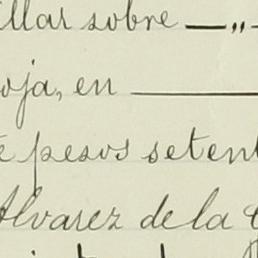 illar sobre — „ —
oja, en —
pesos setent
Alvarez de la